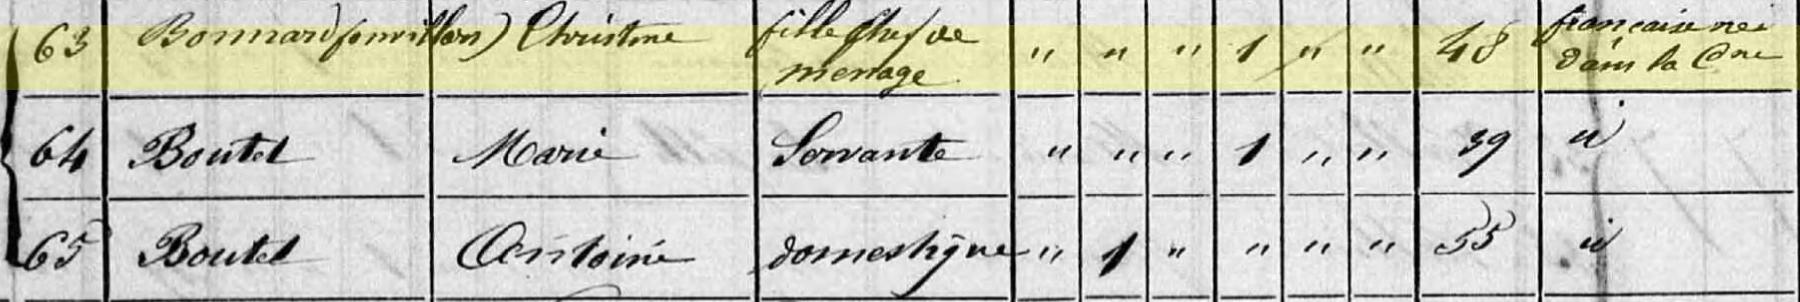 63 Bonnard (fonvillars) Christine fille Chef de " " " 1 " " 48 française née
menage dans la Cne
64 Boutet Marie Servante " " " 1 " " 39 id
65 Boutet Antoine domestique " 1 " " " " 55 id